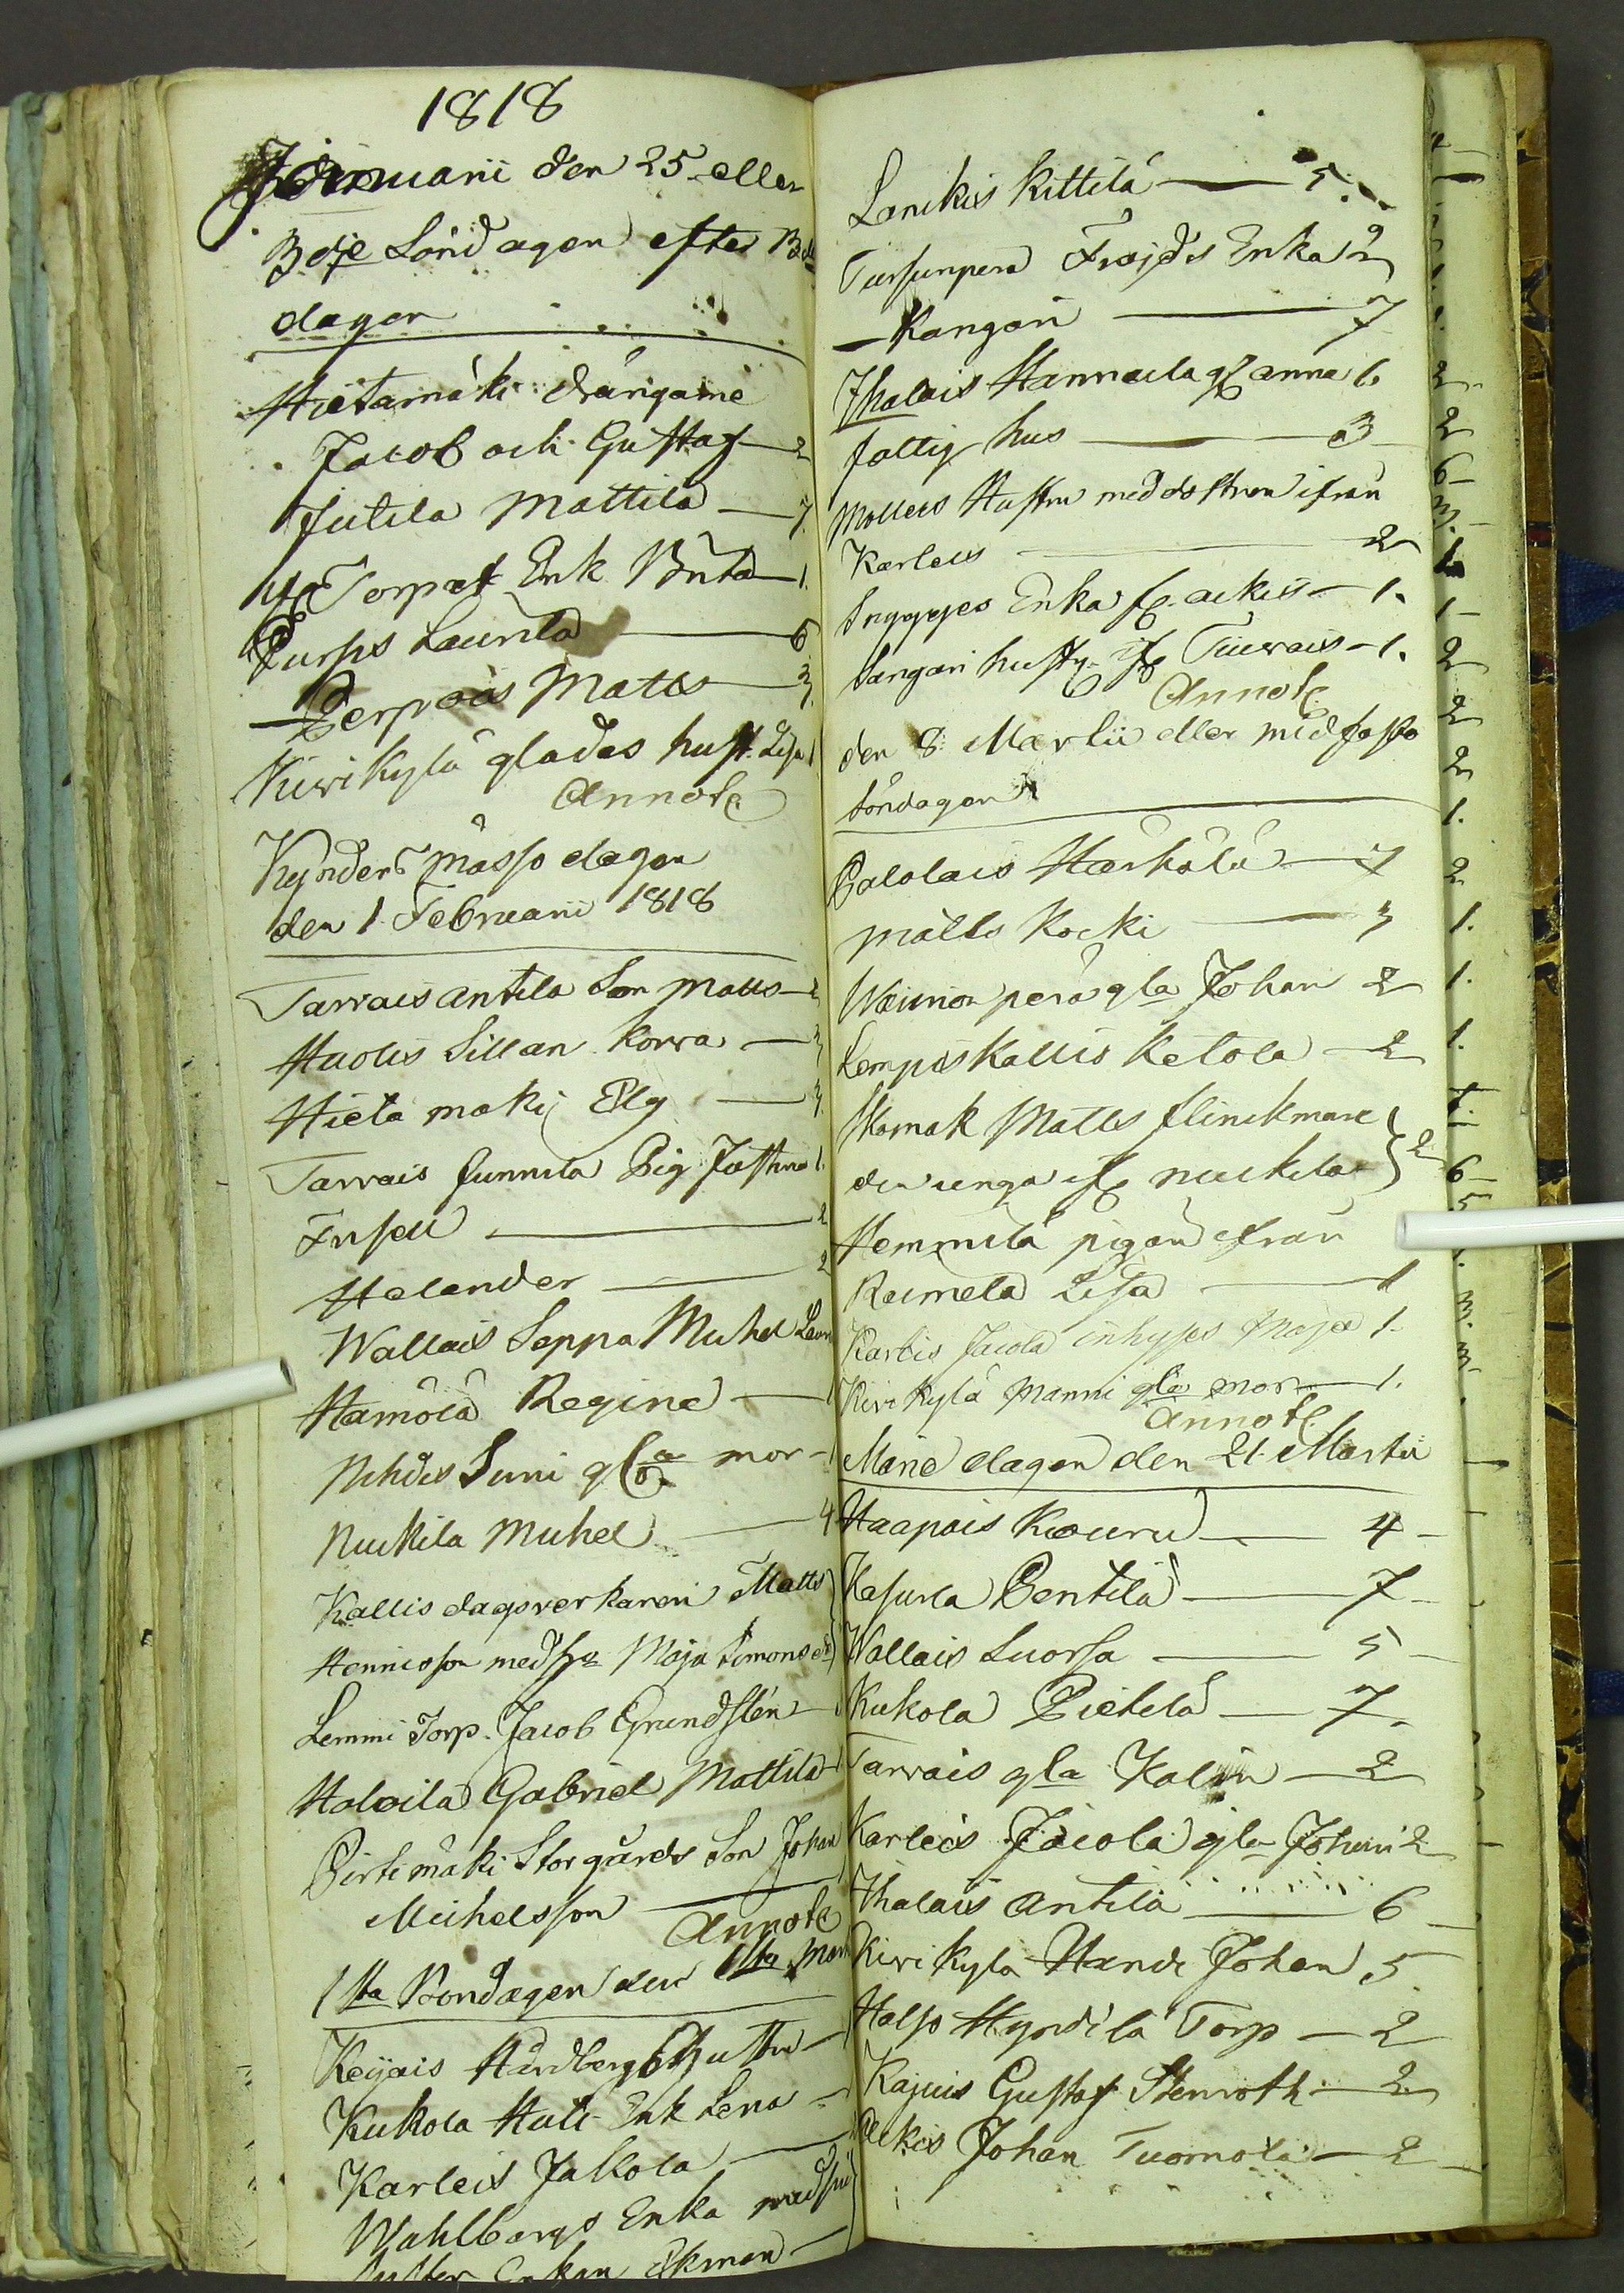 1818
Januarii den 25 eller
3dje Söndagen efter
dagen
Hietamäki drängarne
Jacob och Gustaf - 2
Jutila Mattila - 7.
Torpat Enk Brita - 1.
Purps Launila - 6
Perpois Matts - 3.
Kiwikylä glades hust. Lisa 1
Annote
Kynders mässo dagen
den 1 Februarii 1818
Tarvais Antila Son Matts - 2
Huolis Sillan korva - 3
Hieta mäki Elg - 3.
Tarvais Junnila Pig Justina 1.
Frisell - 2
Helander - 2
Wallais Seppa Mihel
Hamola Regina - 1
Nihdis Suni gla mor - 1
Nuckila Mihel - 4
Kallis dagsverkaren Matts
Hennicson med Maja Simonsd
Lemmi Torp. Jacob Grundsten
Haloila Gabriel Mattila
Pirtimäki Storgårds Son Johan
Michelsson
Annote
1sta Böndagen den 1sta Mar
Keijais Hirdbergs Hustru -
Kukola Huti Enk Lena -
Karleis Jakola -
Wahlbergs Enka med
Enkan Ekman -
Lanikis Kittilä - 5.
Tursunpera Fröjds Enka 2
- Kangari - 7
Ihalais Hannula gl anna 1.
fattig hus - 3
Mollers Hustru med dottren ifrån
Karleis - 2
Snygges Enka fr. ackis - 1.
Sangari husty. ifr Tiuvais - 1.
Annote
den 8 Martii eller midfasto
söndagen
Palolais Härkälä - 7
Mätts Kocki - 3
Wainion perä gla Johan 2
Lempois Kallio Ketola - 2
Komak Matts Klinckman
den unga ifr nuckila } 2
Hemmilä pigan ifrån
Raimela Lisa - 1
Karlis Jacola inhyses Maja 1.
Kivikylä Manni gla mor - 1.
Annote
Marie dagen den 21 Martii
Haapois Kouru - 4 -
Kasurla Pentilä - 7 -
Wallais Suorsa - 5 -
Kukola Pietilä - 7.
Tarvais gla Kalin - 2
Karleis Jacola gla Johan 2
Ihalais Antila - 6 -
Kivikyla Handi Johan 5
Halso Hyndilä Torp - 2
Kajuis Gustaf Stenroth - 2
Ackis Johan Tuomola - 2 -
2
2
6
3.
1.
1
2
2
2
1.
2
1.
1.
1.
6
5
3.
3